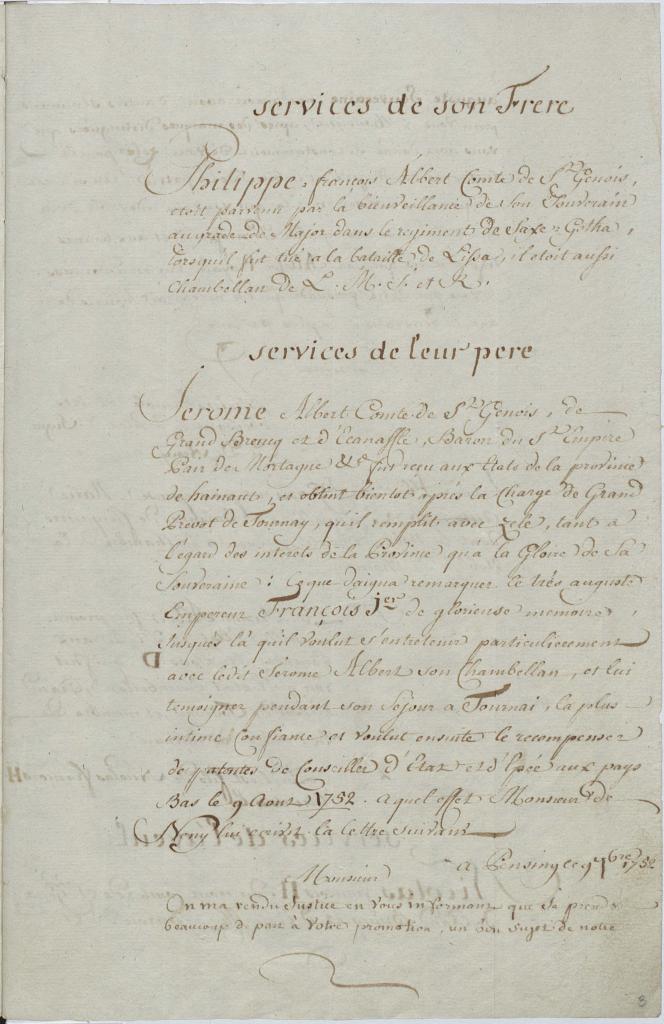 services de son Frere
Philippe, françois Albert Comte de St Genois,
etoit parvenu par la bienveillance de son Souverain
au grade de Major dans le regiment de Saxe=Gotha,
lorsquil fut tué a la bataille de Lissa, il etoit aussi
Chambellan de L. M. I. et R.
services de leur pere
Jerome Albert Comte de St Genois, de
Grand Breucq et d'Ecanaffle, Baron du St Empire
Pair de Mortagne &c fut reçu aux Etats de la province
de hainaut, et obtint bientot après la Charge de Grand
Prevot de Tournay, quil remplit avec zele, tant à
l'égard des interets de la Province qu'à la Gloire de Sa
Souveraine : ce que daigna remarquer le très auguste
Empereur François Ier de glorieuse memoire,
Jusques là quil voulut s'entretenir particulierement
avec ledit Jerome Albert son Chambellan, et lui
temoigner pendant son Sejour a Tournai, la plus
intime Confiance et voulut ensuite le recompenser
de patentes de Conseiller d'Etat et d'Epée aux pays
Bas le 9 Aout 1752. a quel effet Monsieur de
Neny lui ecrivit la lettre suivante
a ce 9 7bre 1752
Monsieur
On m'a rendu Justice en vous informant que Je prends
beaucoup de part à votre promotion, un bon sujet de notre
8